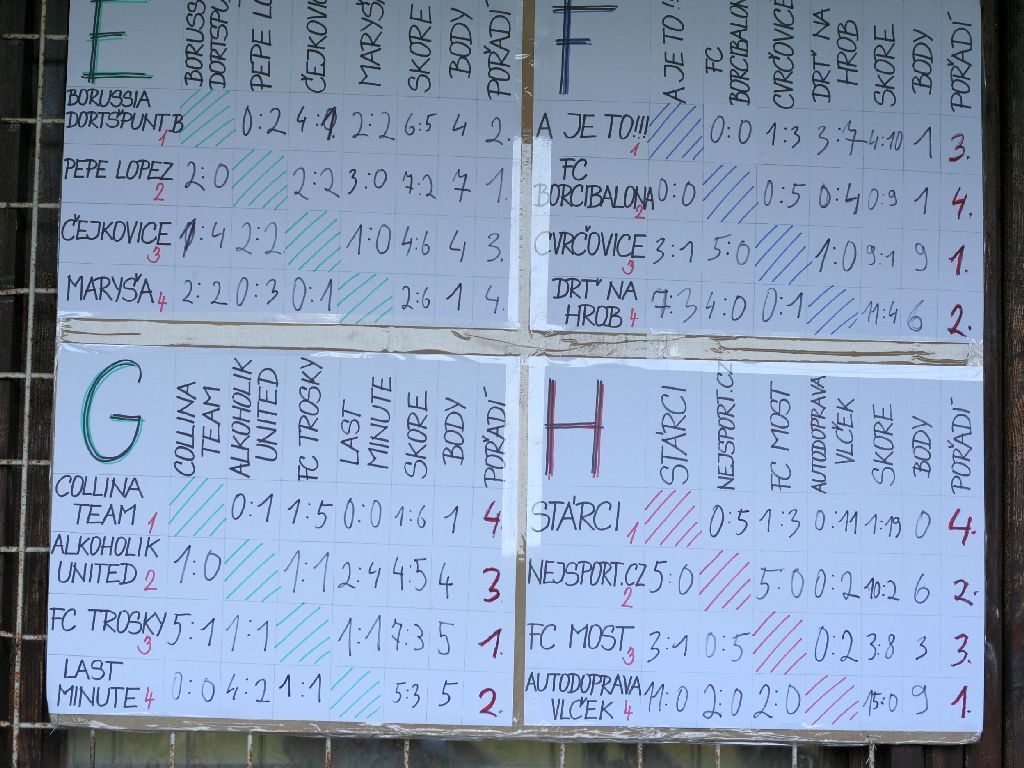 E BORUSSIA DORTŠPUNT PEPE LOPEZ ČEJKOVICE MARYŠA SKORE BODY POŘADÍ
BORUSSIA
DORTŠPUNT B 1 0:2 4:1 2:2 6:5 4 2.
PEPE LOPEZ 2 2:0 2:2 3:0 7:2 7 1.
ČEJKOVICE 3 1:4 2:2 1:0 4:6 4 3.
MARYŠA 4 2:2 0:3 0:1 2:6 1 4.
F A JE TO!! FC BORCIBALONA CVRČOVICE DRŤ NA HROB SKORE BODY POŘADÍ
A JE TO!!! 1 0:0 1:3 3:7 4:10 1 3.
FC
BORCIBALONA 2 0:0 0:5 0:4 0:9 1 4.
CVRČOVICE 3 3:1 5:0 1:0 9:1 9 1.
DRŤ NA
HROB 4 7:3 4:0 0:1 11:4 6 2.
G COLLINA TEAM ALKOHOLIK UNITED FC TROSKY LAST MINUTE SKORE BODY POŘADÍ
COLLINA
TEAM 1 0:1 1:5 0:0 1:6 1 4
ALKOHOLIK
UNITED 2 1:0 1:1 2:4 4:5 4 3.
FC TROSKY 3 5:1 1:1 1:1 7:3 5 1.
LAST
MINUTE 4 0:0 4:2 1:1 5:3 5 2.
H STÁRCI NEJSPORT.CZ FC MOST AUTODOPRAVA VLČEK SKORE BODY POŘADÍ
STÁRCI 1 0:5 1:3 0:11 1:19 0 4.
NEJSPORT.CZ 2 5:0 5:0 0:2 10:2 6 2.
FC MOST 3 3:1 0:5 0:2 3:8 3 3.
AUTODOPRAVA
VLČEK 4 11:0 2:0 2:0 15:0 9 1.